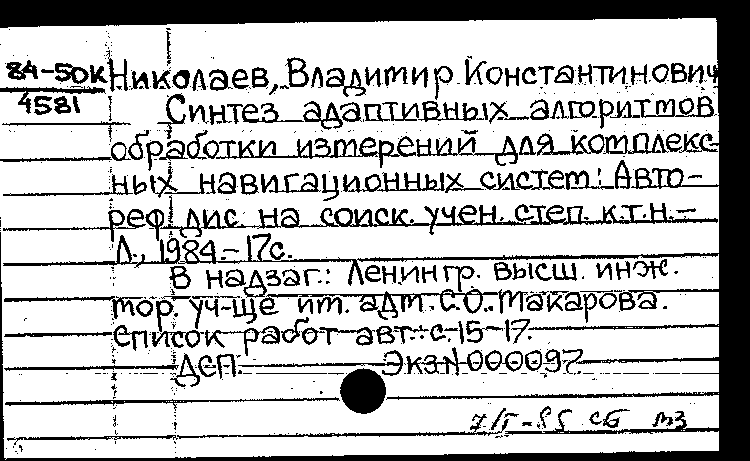 84-50К Николаев, Владимир Константинович
4581 Синтез адаптивных алгоритмов
обработки измерений для комплекс-
ных навигационных систем: Авто-
реф. дис. на соиск. учен. степ. к.т.н.-
Л., 1984.-17с.
В надзаг.: Ленингр. высш. инж.
мор. уч-ще им. адм. С.О. Макарова.
Список работ авт.: с.15-17.
ДСП. Экз N 000097
7/I-85 сб мз